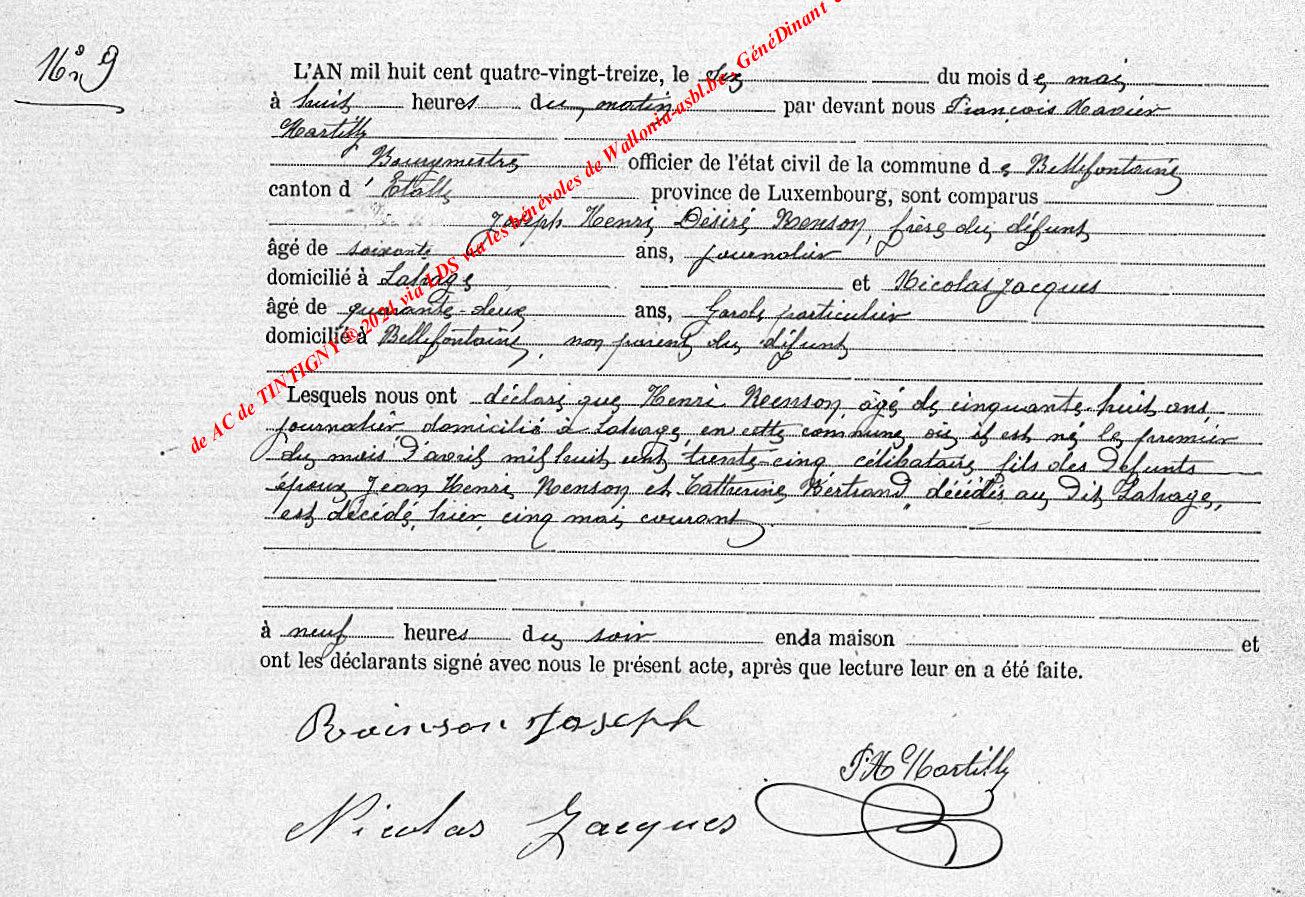 N° 9
L'AN mil huit cent quatre-vingt-treize, le six du mois de mai
à huit heures du matin par devant nous François Xavier
Martilly
Bourgmestre officier de l'état civil de la commune de Bellefontaine
canton d'Etalle province de Luxembourg, sont comparus
Joseph Henri Désiré Renson, frère du défunt
âgé de soixante ans, journalier
domicilié à Lahage et Nicolas Jacques
âgé de quarante-deux ans, Garde particulier
domicilié à Bellefontaine, non parent du défunt
Lesquels nous ont déclaré que Henri Renson, âgé de cinquante-huit ans
journalier domicilié à Lahage, en cette commune où il est né le premier
du mois d'avril mil huit cent trente-cinq célibataire fils des Défunts
époux Jean Henri Renson et Catherine Bertrand, décédés au Dit Lahage,
est décédé, hier, cinq mai courant
à neuf heures du soir en la maison et
ont les déclarants signé avec nous le présent acte, après que lecture leur en a été faite.
Rainson Joseph
F X Martilly
Nicolas Jacques
de AC de TINTIGNY © 2024 via LDS via les bénévoles de Wallonia-asbl.be, GénéDinant